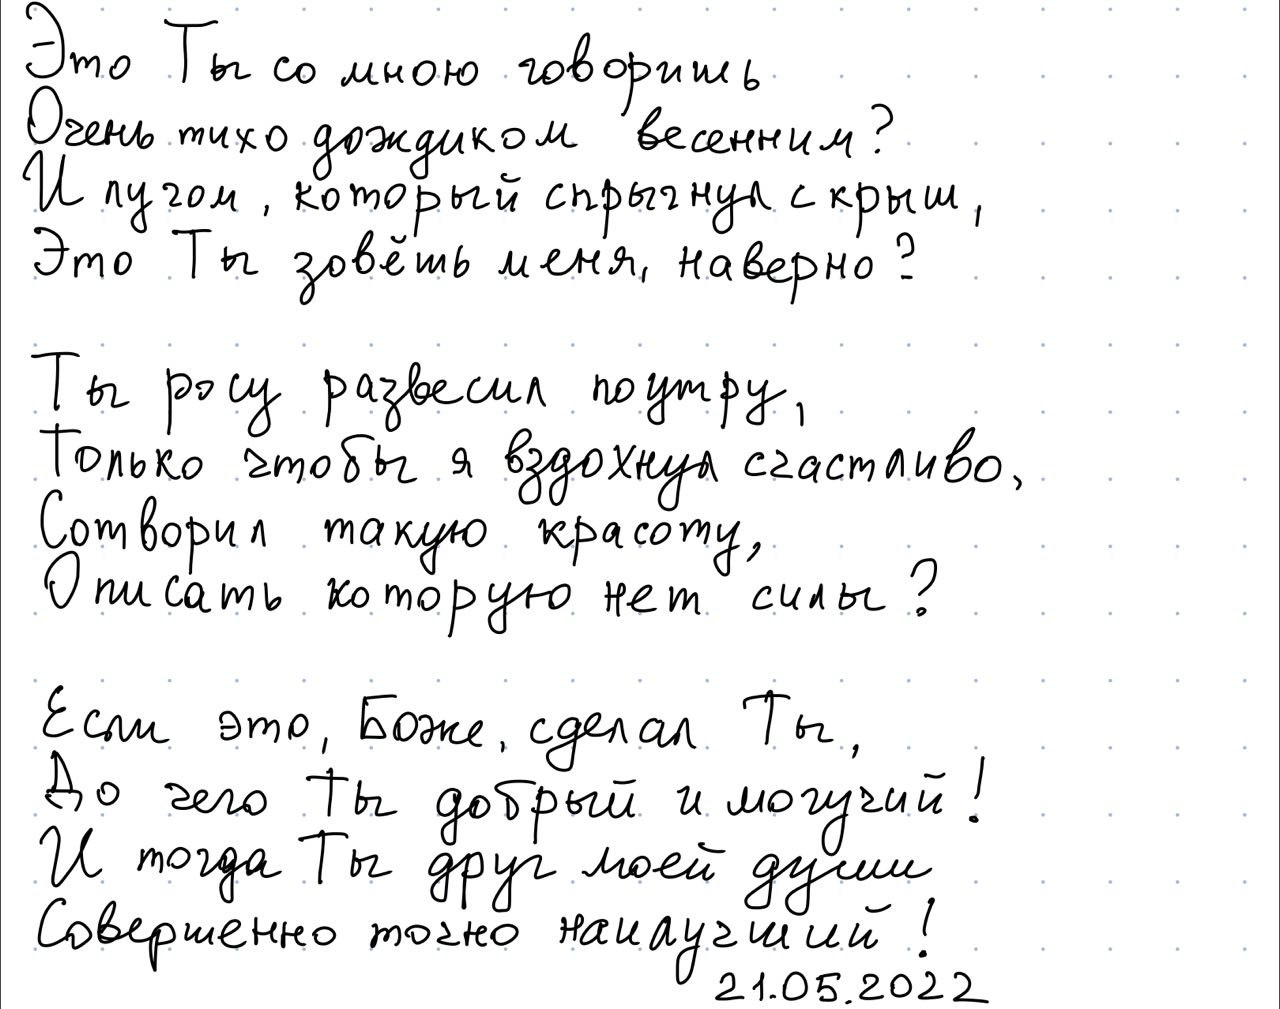 Это Ты со мною говоришь
Очень тихо дождиком весенним?
И лучом, который спрыгнул с крыш,
Это Ты зовёшь меня, наверно?
Ты росу развесил поутру,
Только чтобы я вздохнул счастливо,
Сотворил такую красоту,
Описать которую нет силы?
Если это, Боже, сделал Ты,
До чего Ты добрый и могучий!
И тогда Ты друг моей души
Совершенно точно наилучший!
21.05.2022